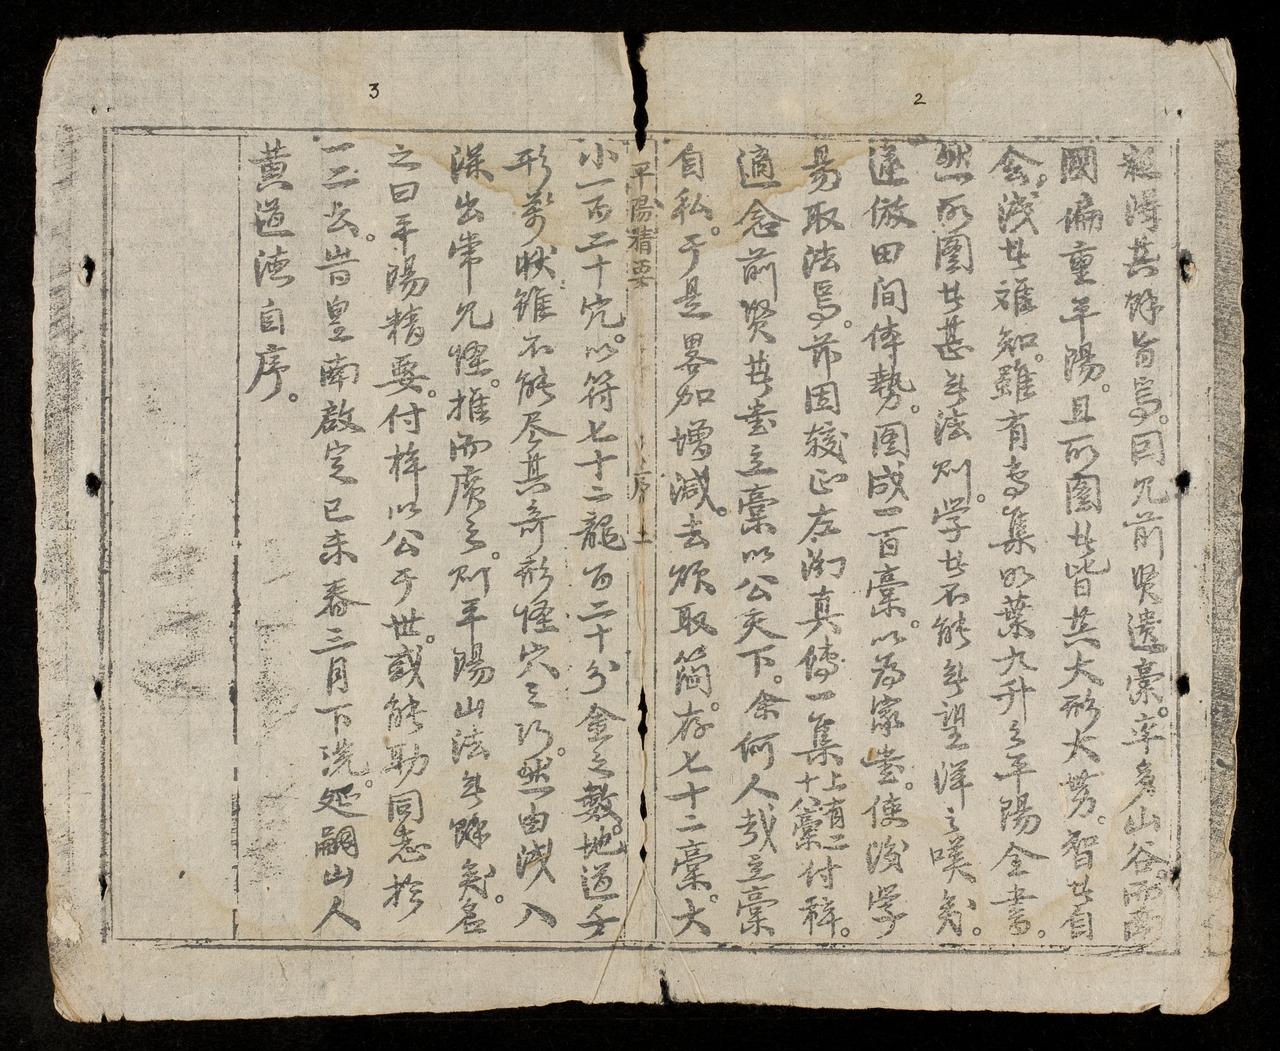 2
3
得其餘旨焉。回見前賢遺稾。卒多山谷。而
國偏重平陽。且所圖昔皆其大形大势。智者自
会。淺者难知。雖有高集如葉九升之平陽全書。
然所圖者甚無法則。学者不能無望洋之嘆矣。
遂倣田间体勢。图成一百稾。以為家書。使後学
易取法焉。茆因較正左泑真傳一集上有二十八稾付梓。
適念前贤著書立稾以公天下。余何人哉立稾
自私。于是畧加增减。去煩取简。存七十二稾。大
平陽精要 序 二
小一百二十穴。以符七十二龍百二十分金之数。地道千
形萬狀雖不能尽其奇形怪穴之巧。然由淺入
深出常見怪。推而廣之。則平陽山法無餘矣。名
之曰平陽精要。付梓以公于世。或能助同志於
一二云。皆皇南啟定己未春三月下浣。延嗣山人
黄道德自序。